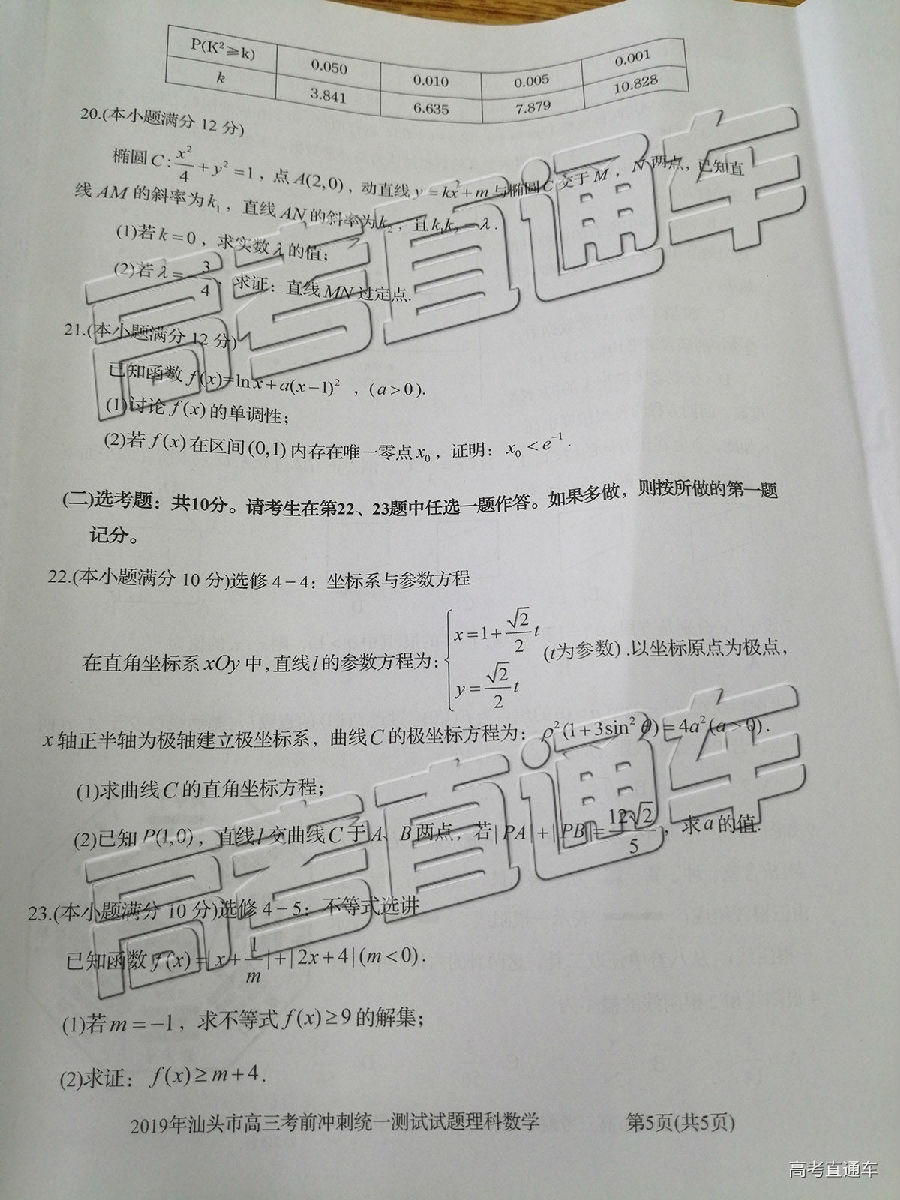 P(K²≥k) 0.050 0.010 0.005 0.001
k 3.841 6.635 7.879 10.828
20.(本小题满分 12 分)
椭圆C: x²/4 + y² =1，点A(2,0)，动直线 y = kx + m 与椭圆C交于M，N两点，已知直
线 AM 的斜率为k₁，直线 AN 的斜率为k₂，且k₁k₂ = λ.
(1)若k=0，求实数λ的值;
(2)若λ= 3/4，求证：直线MN过定点.
21.(本小题满分 12 分)
已知函数 f(x)=ln x+a(x−1)²，(a>0).
(1)讨论 f(x) 的单调性;
(2)若 f(x) 在区间(0,1)内存在唯一零点x₀，证明：x₀ < e⁻¹.
(二)选考题：共10分。请考生在第22、23题中任选一题作答。如果多做，则按所做的第一题
记分。
22.(本小题满分 10 分)选修 4－4：坐标系与参数方程
在直角坐标系 xOy 中,直线l的参数方程为: { x=1+ √2/2 t y= √2/2 t (t为参数) .以坐标原点为极点，
x 轴正半轴为极轴建立极坐标系，曲线C 的极坐标方程为：ρ²(1+3sin²θ)=4a²(a>0).
(1)求曲线C 的直角坐标方程;
(2)已知 P(1,0)，直线l 交曲线C 于 A、B 两点，若|PA|+|PB|= 12√2/5，求a 的值.
23.(本小题满分 10 分)选修 4－5：不等式选讲
已知函数 f(x)=|x+ 1/m |+|2x+4|(m<0).
(1)若m=−1，求不等式 f(x)≥9 的解集;
(2)求证：f(x)≥m+4.
2019年汕头市高三考前冲刺统一测试试题理科数学 第5页(共5页)
高考直通车
高考直通车
高考直通车